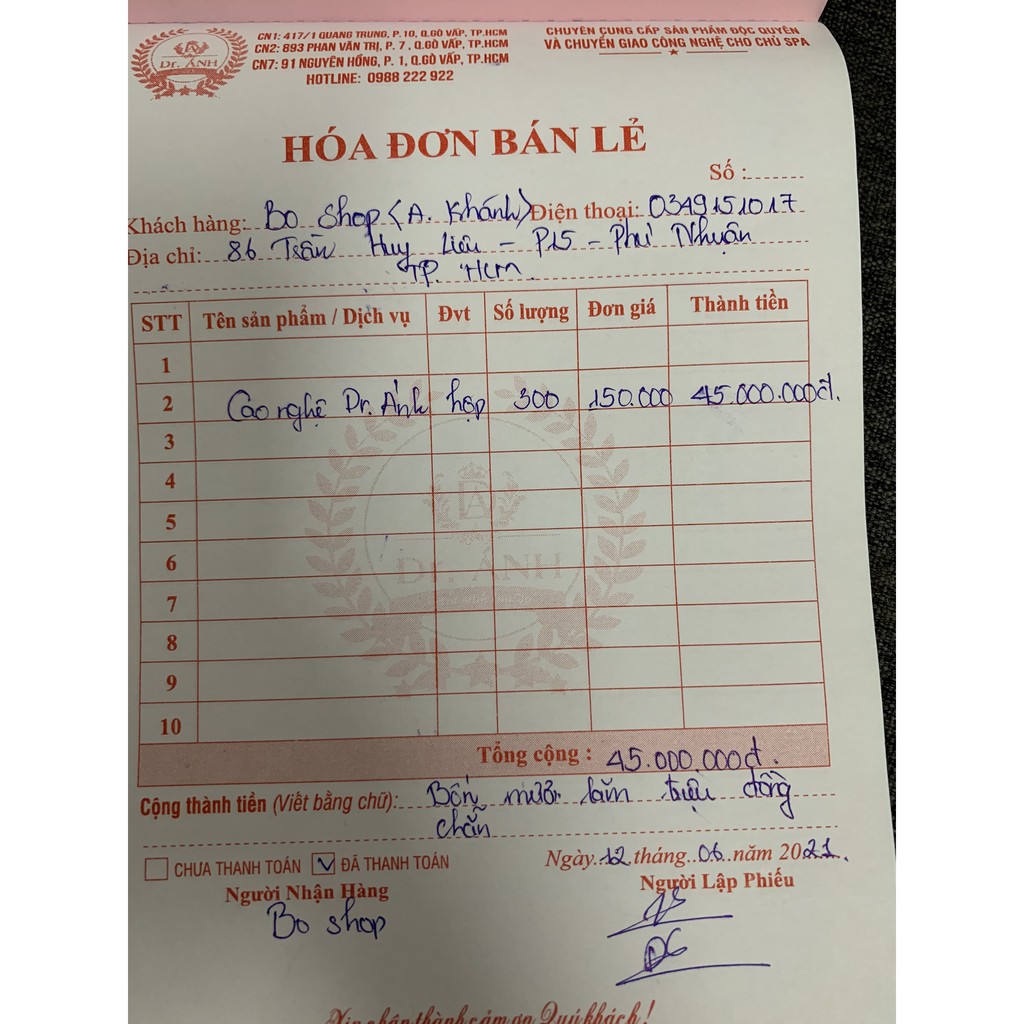 CN1: 417/1 QUANG TRUNG, P.10, Q.GÒ VẤP, TP.HCM
CN2: 893 PHAN VĂN TRỊ, P. 7, Q.GÒ VẤP, TP.HCM
CN7: 91 NGUYÊN HỒNG, P. 1, Q.GÒ VẤP, TP.HCM
HOTLINE: 0988 222 922
CHUYÊN CUNG CẤP SẢN PHẨM ĐỘC QUYỀN
VÀ CHUYỂN GIAO CÔNG NGHỆ CHO CHỦ SPA
Dr. ÁNH
HÓA ĐƠN BÁN LẺ
Số :
Khách hàng: Bo Shop (A. Khánh) Điện thoại: 0349151017
Địa chỉ: 86 Trần Huy Liêu - P15 - Phú Nhuận
TP. HCM
STT Tên sản phẩm / Dịch vụ Đvt Số lượng Đơn giá Thành tiền
1
2 Cao nghệ Dr. Ánh hộp 300 150.000 45.000.000đ.
3
4
5
6
Dr. ÁNH
7
8
9
10
Tổng cộng : 45.000.000đ.
Cộng thành tiền (Viết bằng chữ): Bốn mươi lăm triệu đồng
chẵn
CHƯA THANH TOÁN ĐÃ THANH TOÁN
Ngày 12 tháng 06 năm 2021.
Người Nhận Hàng
Người Lập Phiếu
Bo shop
Xin chân thành cảm ơn Quý khách!